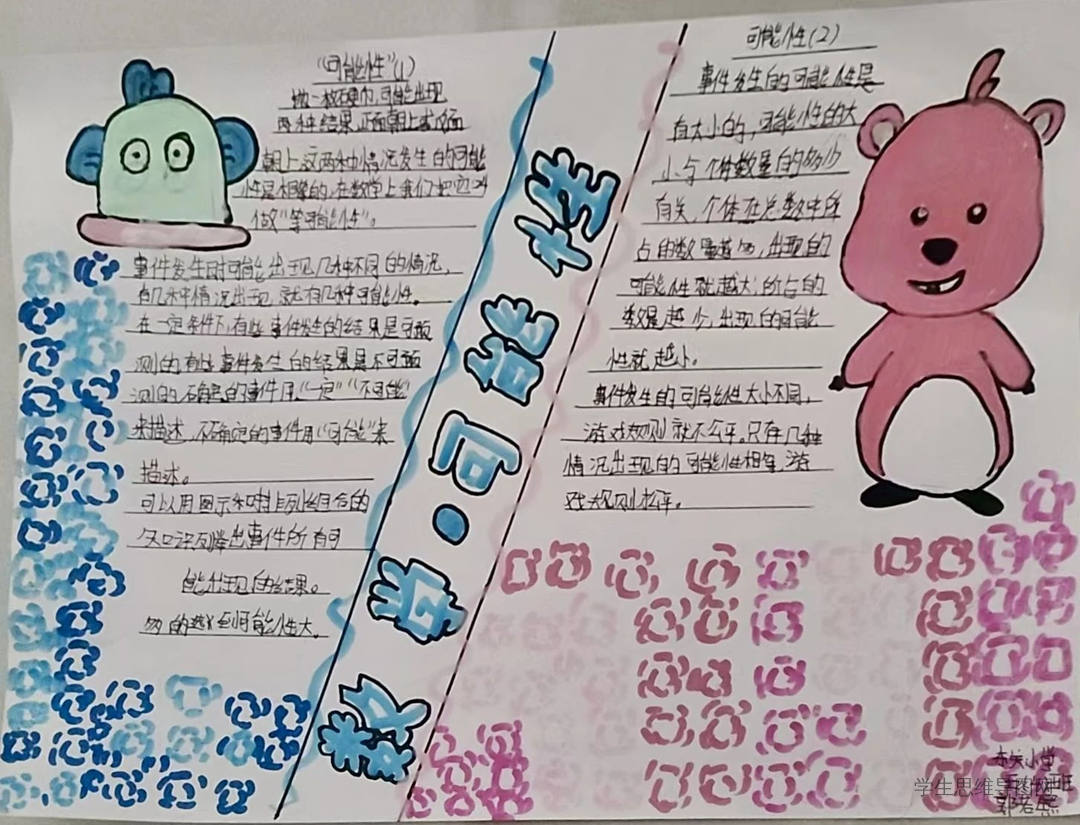 "可能性"(1)
抛一枚硬币,可能出现
两种结果,正面朝上或反面
朝上这两种情况发生的可能
性是相等的,在数学上我们把它叫
做"等可能性"。
事件发生时可能出现几种不同的情况,
有几种情况出现,就有几种可能性。
在一定条件下,有些事件发生的结果是可预
测的,有些事件发生的结果是不可预
测的。确定的事件用"一定""不可能"
来描述,不确定的事件用"可能"来
描述。
可以用图示和排列组合的
知识列举出事件所有可
能出现的结果。
多的摸到可能性大。
数学·可能性
可能性(2)
事件发生的可能性是
有大小的,可能性的大
小与个体数量的多少
有关,个体在总数中所
占的数量越多,出现的
可能性就越大;所占的
数量越少,出现的可能
性就越小。
事件发生的可能性大小不同,
游戏规则就不公平。只有几种
情况出现的可能性相等,游
戏规则公平。
小学
班
学生思维导图网